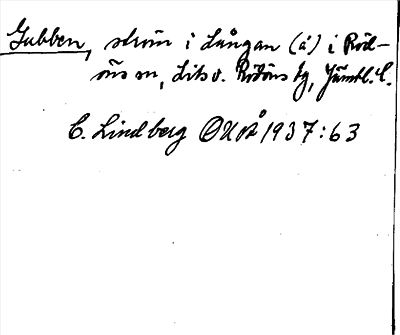 Gubben, ström i Långan (å) i Röd-
öns sn, Lits o. Rödöns tg, Jämtl. l.
C. Lindberg OUÅ 1937:63